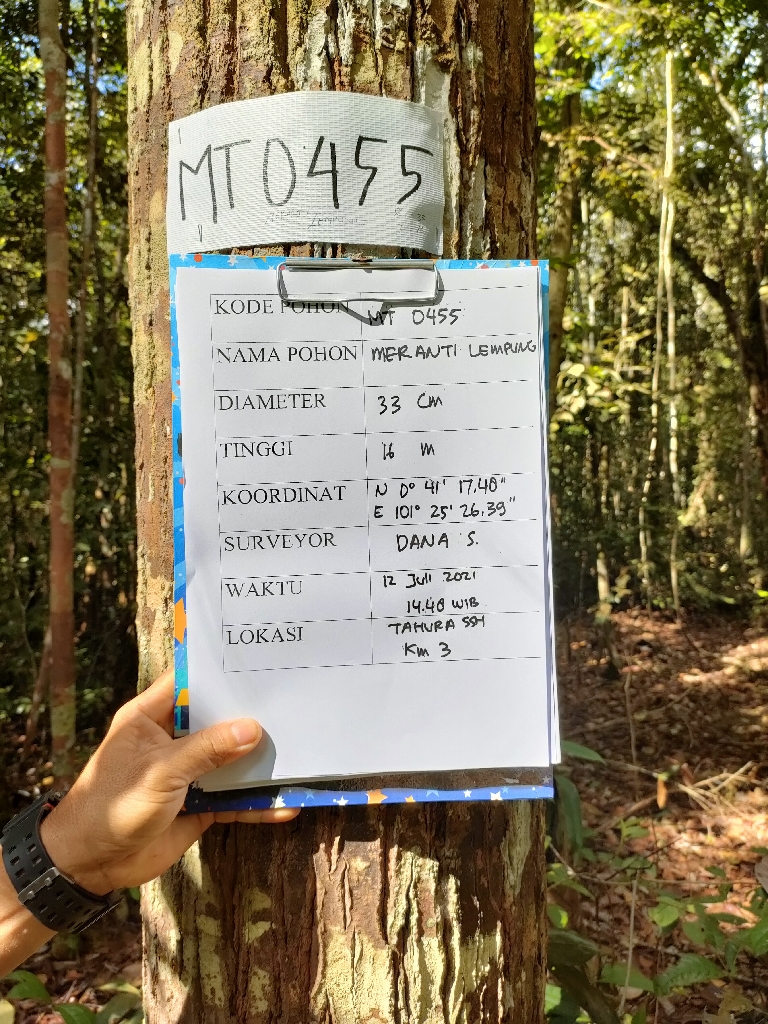 MT 0455
KODE POHON MT 0455
NAMA POHON MERANTI LEMPUNG
DIAMETER 33 Cm
TINGGI 16 m
KOORDINAT N 0° 41' 17.40"
E 101° 25' 26.39"
SURVEYOR DANA S.
WAKTU 12 Juli 2021
14.40 WIB
LOKASI TAHURA SSH
Km 3